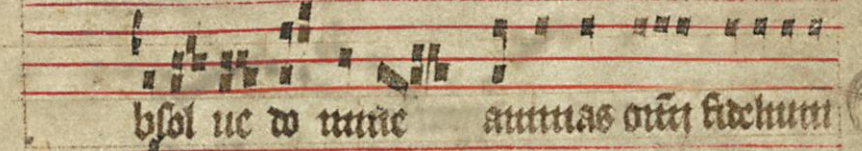 bsol ue do mine animas om̅i fidelium